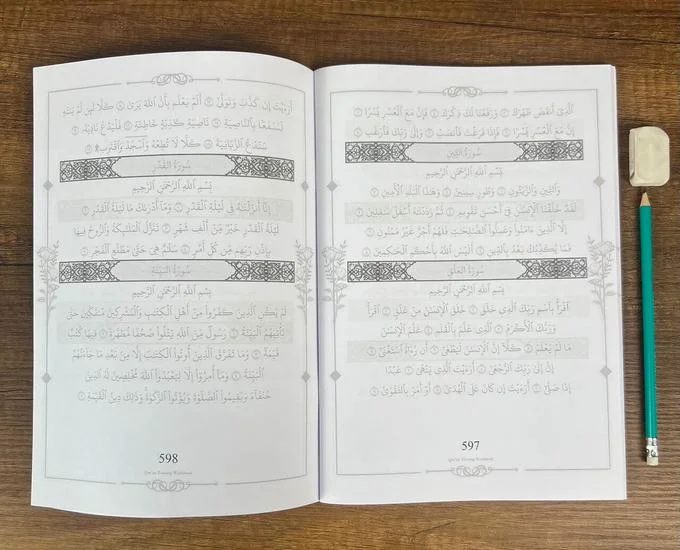 ٱلَّذِىٓ أَنقَضَ ظَهْرَكَ ٣ وَرَفَعْنَا لَكَ ذِكْرَكَ ٤ فَإِنَّ مَعَ ٱلْعُسْرِ يُسْرًا ٥
إِنَّ مَعَ ٱلْعُسْرِ يُسْرًا ٦ فَإِذَا فَرَغْتَ فَٱنصَبْ ٧ وَإِلَىٰ رَبِّكَ فَٱرْغَب ٨
سُورَةُ التِّينِ
بِسْمِ ٱللَّهِ ٱلرَّحْمَٰنِ ٱلرَّحِيمِ
وَٱلتِّينِ وَٱلزَّيْتُونِ ١ وَطُورِ سِينِينَ ٢ وَهَٰذَا ٱلْبَلَدِ ٱلْأَمِينِ ٣
لَقَدْ خَلَقْنَا ٱلْإِنسَٰنَ فِىٓ أَحْسَنِ تَقْوِيمٍ ٤ ثُمَّ رَدَدْنَٰهُ أَسْفَلَ سَٰفِلِينَ ٥
إِلَّا ٱلَّذِينَ ءَامَنُوا۟ وَعَمِلُوا۟ ٱلصَّٰلِحَٰتِ فَلَهُمْ أَجْرٌ غَيْرُ مَمْنُونٍ ٦
فَمَا يُكَذِّبُكَ بَعْدُ بِٱلدِّينِ ٧ أَلَيْسَ ٱللَّهُ بِأَحْكَمِ ٱلْحَٰكِمِينَ ٨
سُورَةُ العَلَقِ
بِسْمِ ٱللَّهِ ٱلرَّحْمَٰنِ ٱلرَّحِيمِ
ٱقْرَأْ بِٱسْمِ رَبِّكَ ٱلَّذِى خَلَقَ ١ خَلَقَ ٱلْإِنسَٰنَ مِنْ عَلَقٍ ٢ ٱقْرَأْ
وَرَبُّكَ ٱلْأَكْرَمُ ٣ ٱلَّذِى عَلَّمَ بِٱلْقَلَمِ ٤ عَلَّمَ ٱلْإِنسَٰنَ
مَا لَمْ يَعْلَمْ ٥ كَلَّآ إِنَّ ٱلْإِنسَٰنَ لَيَطْغَىٰٓ ٦ أَن رَّءَاهُ ٱسْتَغْنَىٰٓ ٧
إِنَّ إِلَىٰ رَبِّكَ ٱلرُّجْعَىٰٓ ٨ أَرَءَيْتَ ٱلَّذِى يَنْهَىٰ ٩ عَبْدًا
إِذَا صَلَّىٰٓ ١٠ أَرَءَيْتَ إِن كَانَ عَلَى ٱلْهُدَىٰٓ ١١ أَوْ أَمَرَ بِٱلتَّقْوَىٰٓ ١٢
597
Qur'an Tracing Workbook
أَرَءَيْتَ إِن كَذَّبَ وَتَوَلَّىٰٓ ١٣ أَلَمْ يَعْلَم بِأَنَّ ٱللَّهَ يَرَىٰ ١٤ كَلَّا لَئِن لَّمْ يَنتَهِ
لَنَسْفَعًۢا بِٱلنَّاصِيَةِ ١٥ نَاصِيَةٍ كَٰذِبَةٍ خَاطِئَةٍ ١٦ فَلْيَدْعُ نَادِيَهُۥ ١٧
سَنَدْعُ ٱلزَّبَانِيَةَ ١٨ كَلَّا لَا تُطِعْهُ وَٱسْجُدْ وَٱقْتَرِب۩ ١٩
سُورَةُ القَدْرِ
بِسْمِ ٱللَّهِ ٱلرَّحْمَٰنِ ٱلرَّحِيمِ
إِنَّآ أَنزَلْنَٰهُ فِى لَيْلَةِ ٱلْقَدْرِ ١ وَمَآ أَدْرَىٰكَ مَا لَيْلَةُ ٱلْقَدْرِ ٢
لَيْلَةُ ٱلْقَدْرِ خَيْرٌ مِّنْ أَلْفِ شَهْرٍ ٣ تَنَزَّلُ ٱلْمَلَٰٓئِكَةُ وَٱلرُّوحُ فِيهَا
بِإِذْنِ رَبِّهِم مِّن كُلِّ أَمْرٍ ٤ سَلَٰمٌ هِىَ حَتَّىٰ مَطْلَعِ ٱلْفَجْرِ ٥
سُورَةُ البَيِّنَةِ
بِسْمِ ٱللَّهِ ٱلرَّحْمَٰنِ ٱلرَّحِيمِ
لَمْ يَكُنِ ٱلَّذِينَ كَفَرُوا۟ مِنْ أَهْلِ ٱلْكِتَٰبِ وَٱلْمُشْرِكِينَ مُنفَكِّينَ حَتَّىٰ
تَأْتِيَهُمُ ٱلْبَيِّنَةُ ١ رَسُولٌ مِّنَ ٱللَّهِ يَتْلُوا۟ صُحُفًا مُّطَهَّرَةً ٢ فِيهَا كُتُبٌ
قَيِّمَةٌ ٣ وَمَا تَفَرَّقَ ٱلَّذِينَ أُوتُوا۟ ٱلْكِتَٰبَ إِلَّا مِنۢ بَعْدِ مَا جَآءَتْهُمُ
ٱلْبَيِّنَةُ ٤ وَمَآ أُمِرُوٓا۟ إِلَّا لِيَعْبُدُوا۟ ٱللَّهَ مُخْلِصِينَ لَهُ ٱلدِّينَ
حُنَفَآءَ وَيُقِيمُوا۟ ٱلصَّلَوٰةَ وَيُؤْتُوا۟ ٱلزَّكَوٰةَ وَذَٰلِكَ دِينُ ٱلْقَيِّمَةِ ٥
598
Qur'an Tracing Workbook